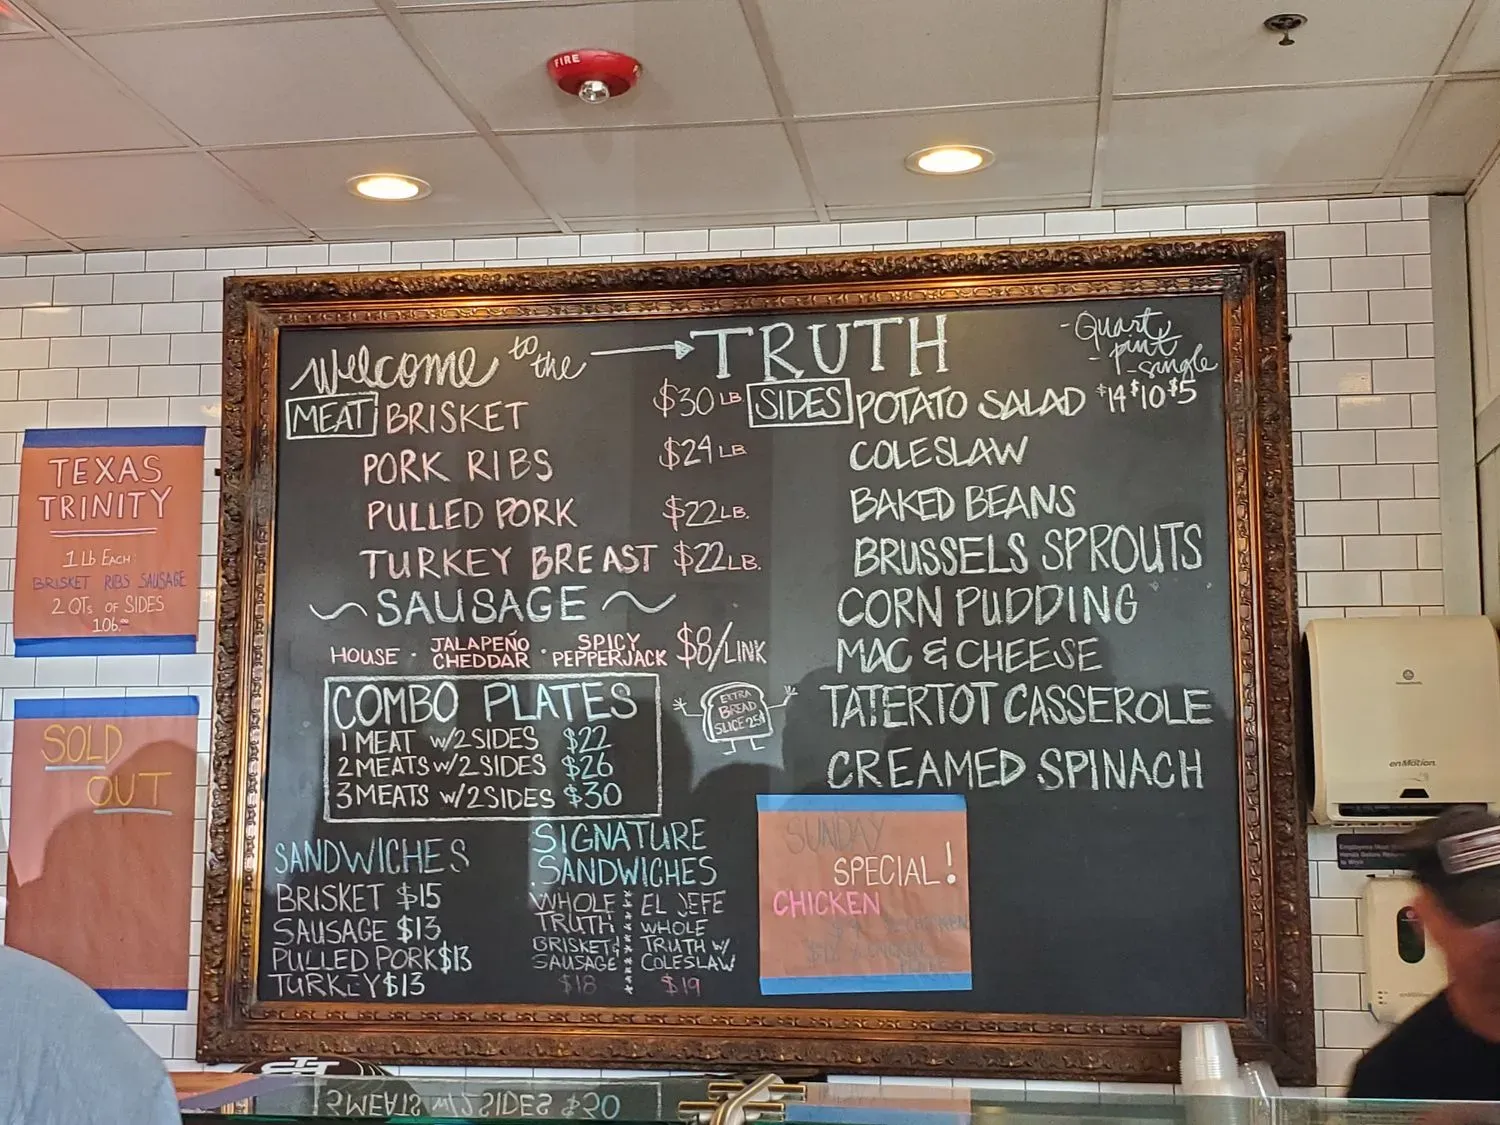 FIRE
Welcome to the TRUTH
- Quart
- pint
- single
MEAT BRISKET $30 LB
PORK RIBS $24 LB
PULLED PORK $22 LB.
TURKEY BREAST $22 LB.
SAUSAGE
HOUSE · JALAPEÑO CHEDDAR · SPICY PEPPERJACK $8/LINK
COMBO PLATES
1 MEAT w/2 SIDES $22
2 MEATS w/2 SIDES $26
3 MEATS w/2 SIDES $30
EXTRA
BREAD
SLICE 25¢
SIDES POTATO SALAD $14 $10 $5
COLESLAW
BAKED BEANS
BRUSSELS SPROUTS
CORN PUDDING
MAC & CHEESE
TATERTOT CASSEROLE
CREAMED SPINACH
SANDWICHES
BRISKET $15
SAUSAGE $13
PULLED PORK $13
TURKEY $13
SIGNATURE
SANDWICHES
WHOLE
TRUTH
BRISKET &
SAUSAGE
$18
EL JEFE
WHOLE
TRUTH W/
COLESLAW
$19
SUNDAY
SPECIAL!
CHICKEN
TEXAS
TRINITY
1 Lb EACH:
BRISKET RIBS SAUSAGE
2 QTs OF SIDES
106.00
SOLD
OUT
enMotion
3 MEATS w/2 SIDES $30